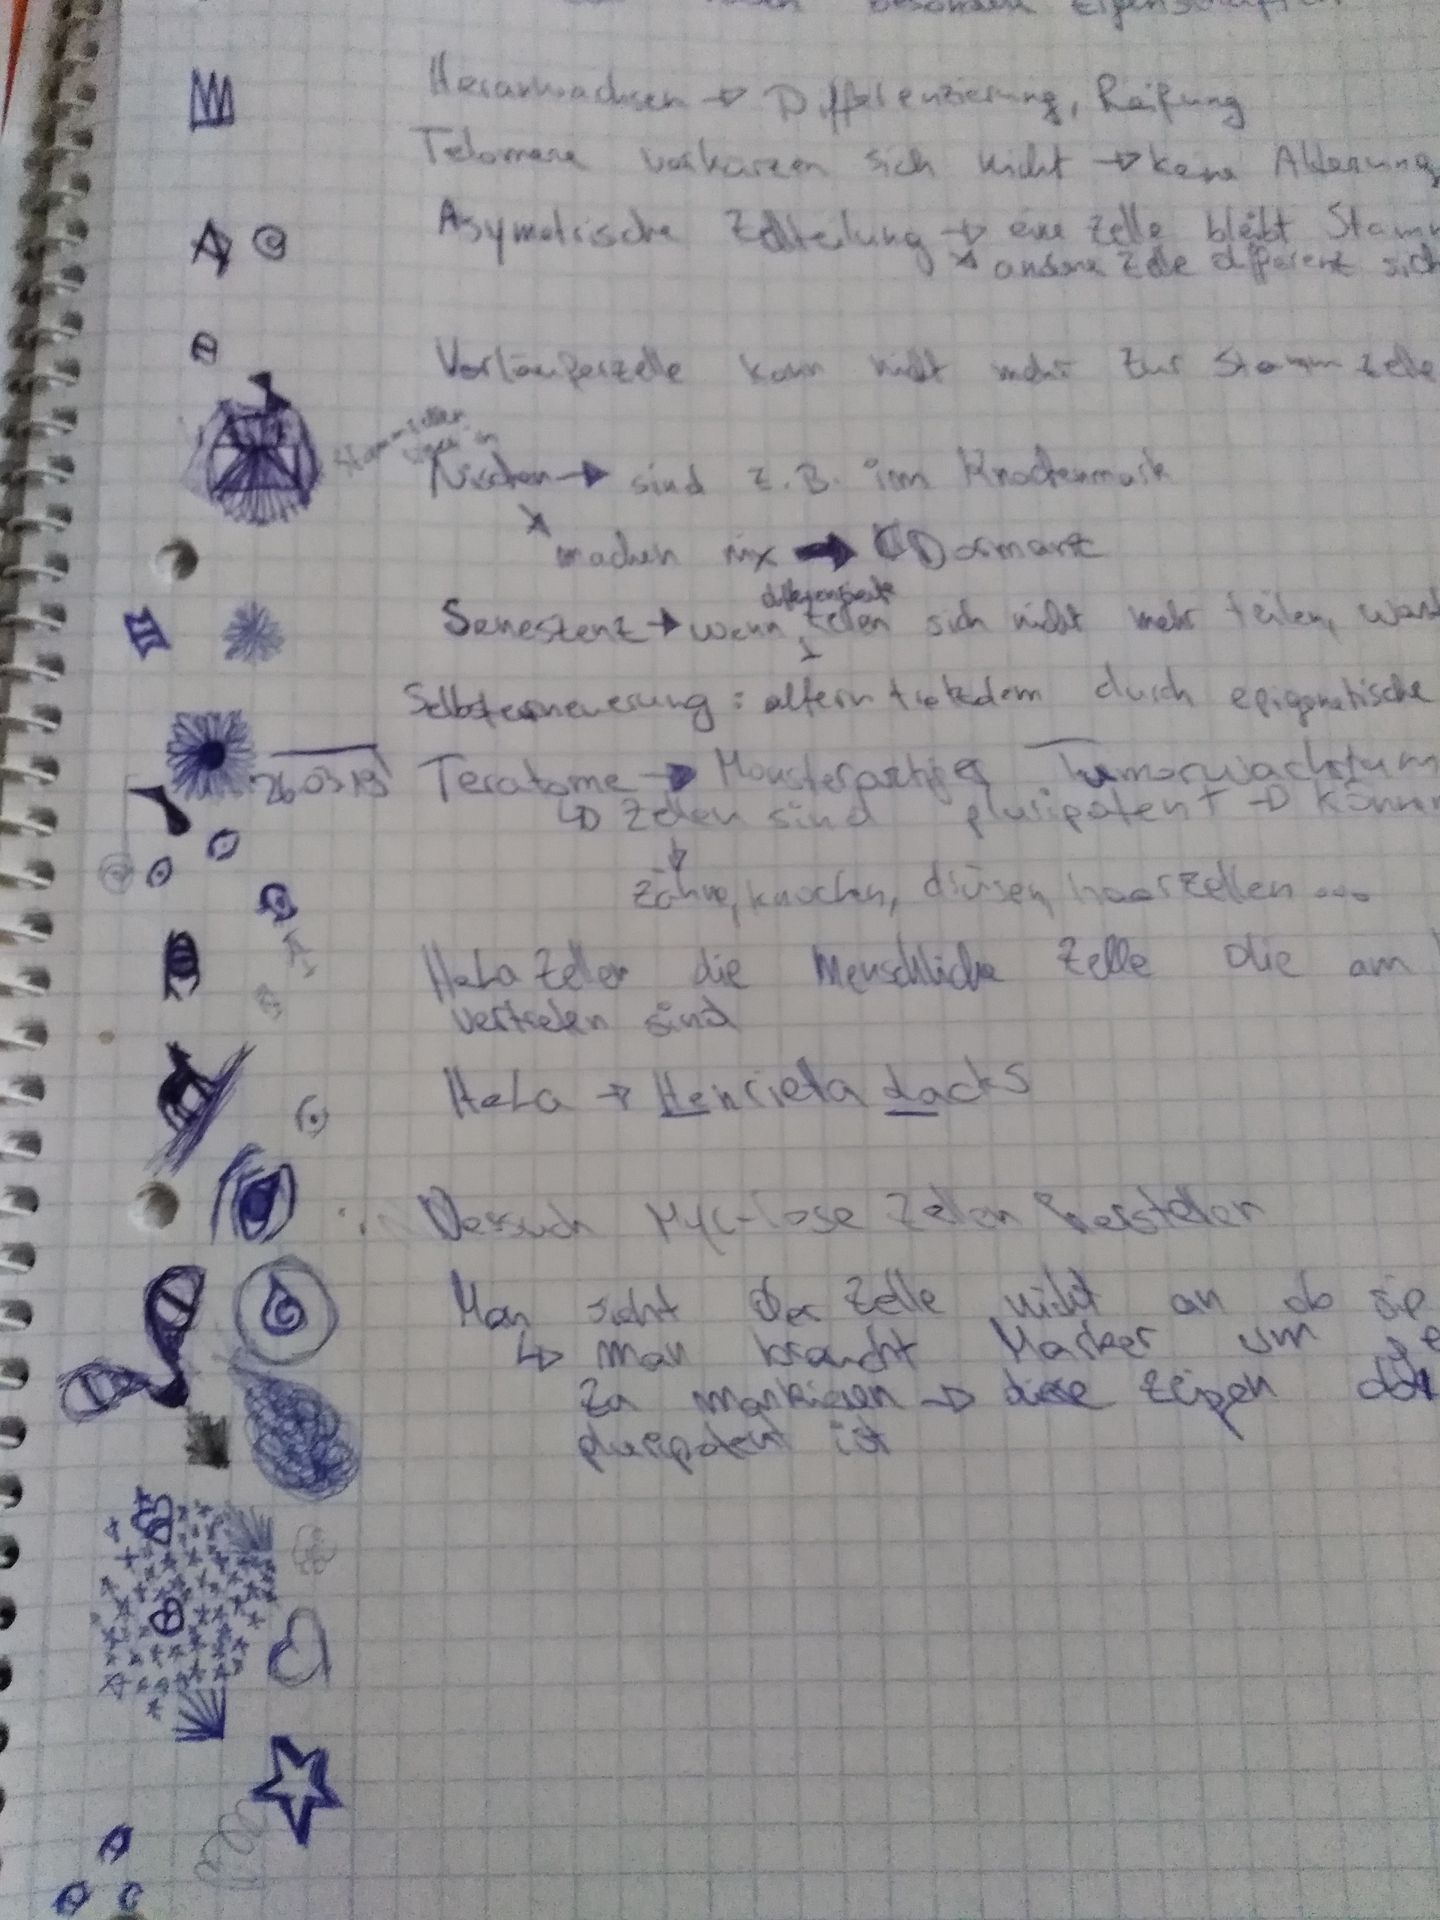 besondere Eigenschaften
Heranwachsen → Differenzierung, Reifung
Telomere verkürzen sich nicht → keine Alterung
Asymetrische Zellteilung → eine Zelle bleibt Stamm
↘ andere Zelle differenz sich
Vorläuferzelle kann nicht mehr zur Stammzelle
Stammzellen liegen in
Nischen → sind z.B. im Knochenmark
↘ machen nix → Dormant
differenzierte
Seneszenz → wenn Zellen sich nicht mehr teilen,
Selbsterneuerung: altern trotzdem durch epigenetische
26.03.19 Teratome → Monsterartiges Tumorwachstum
↳ Zellen sind pluripotent → können
↓
Zähne, knochen, drüsen, haarzellen ...
HeLa Zellen die Menschliche Zelle die am
vertreten sind
HeLa → Henrieta Lacks
Versuch Myc-lose Zellen herstellen
Man sieht der Zelle nicht an ob sie
↳ man braucht Marker um
zu markieren → diese zeigen
pluripotent ist